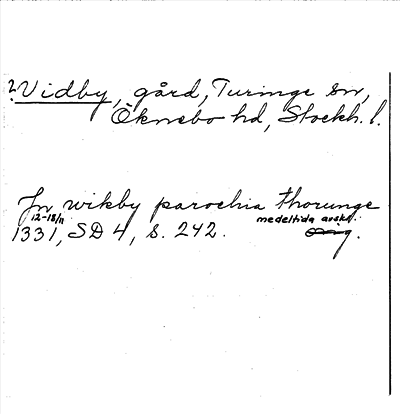 ? Vidby, gård, Turinge sn,
Öknebo hd, Stockh. l.
In wikby parochia thorunge
12-18/11 medeltida avskr.
1331, SD 4, s. 242. orig.